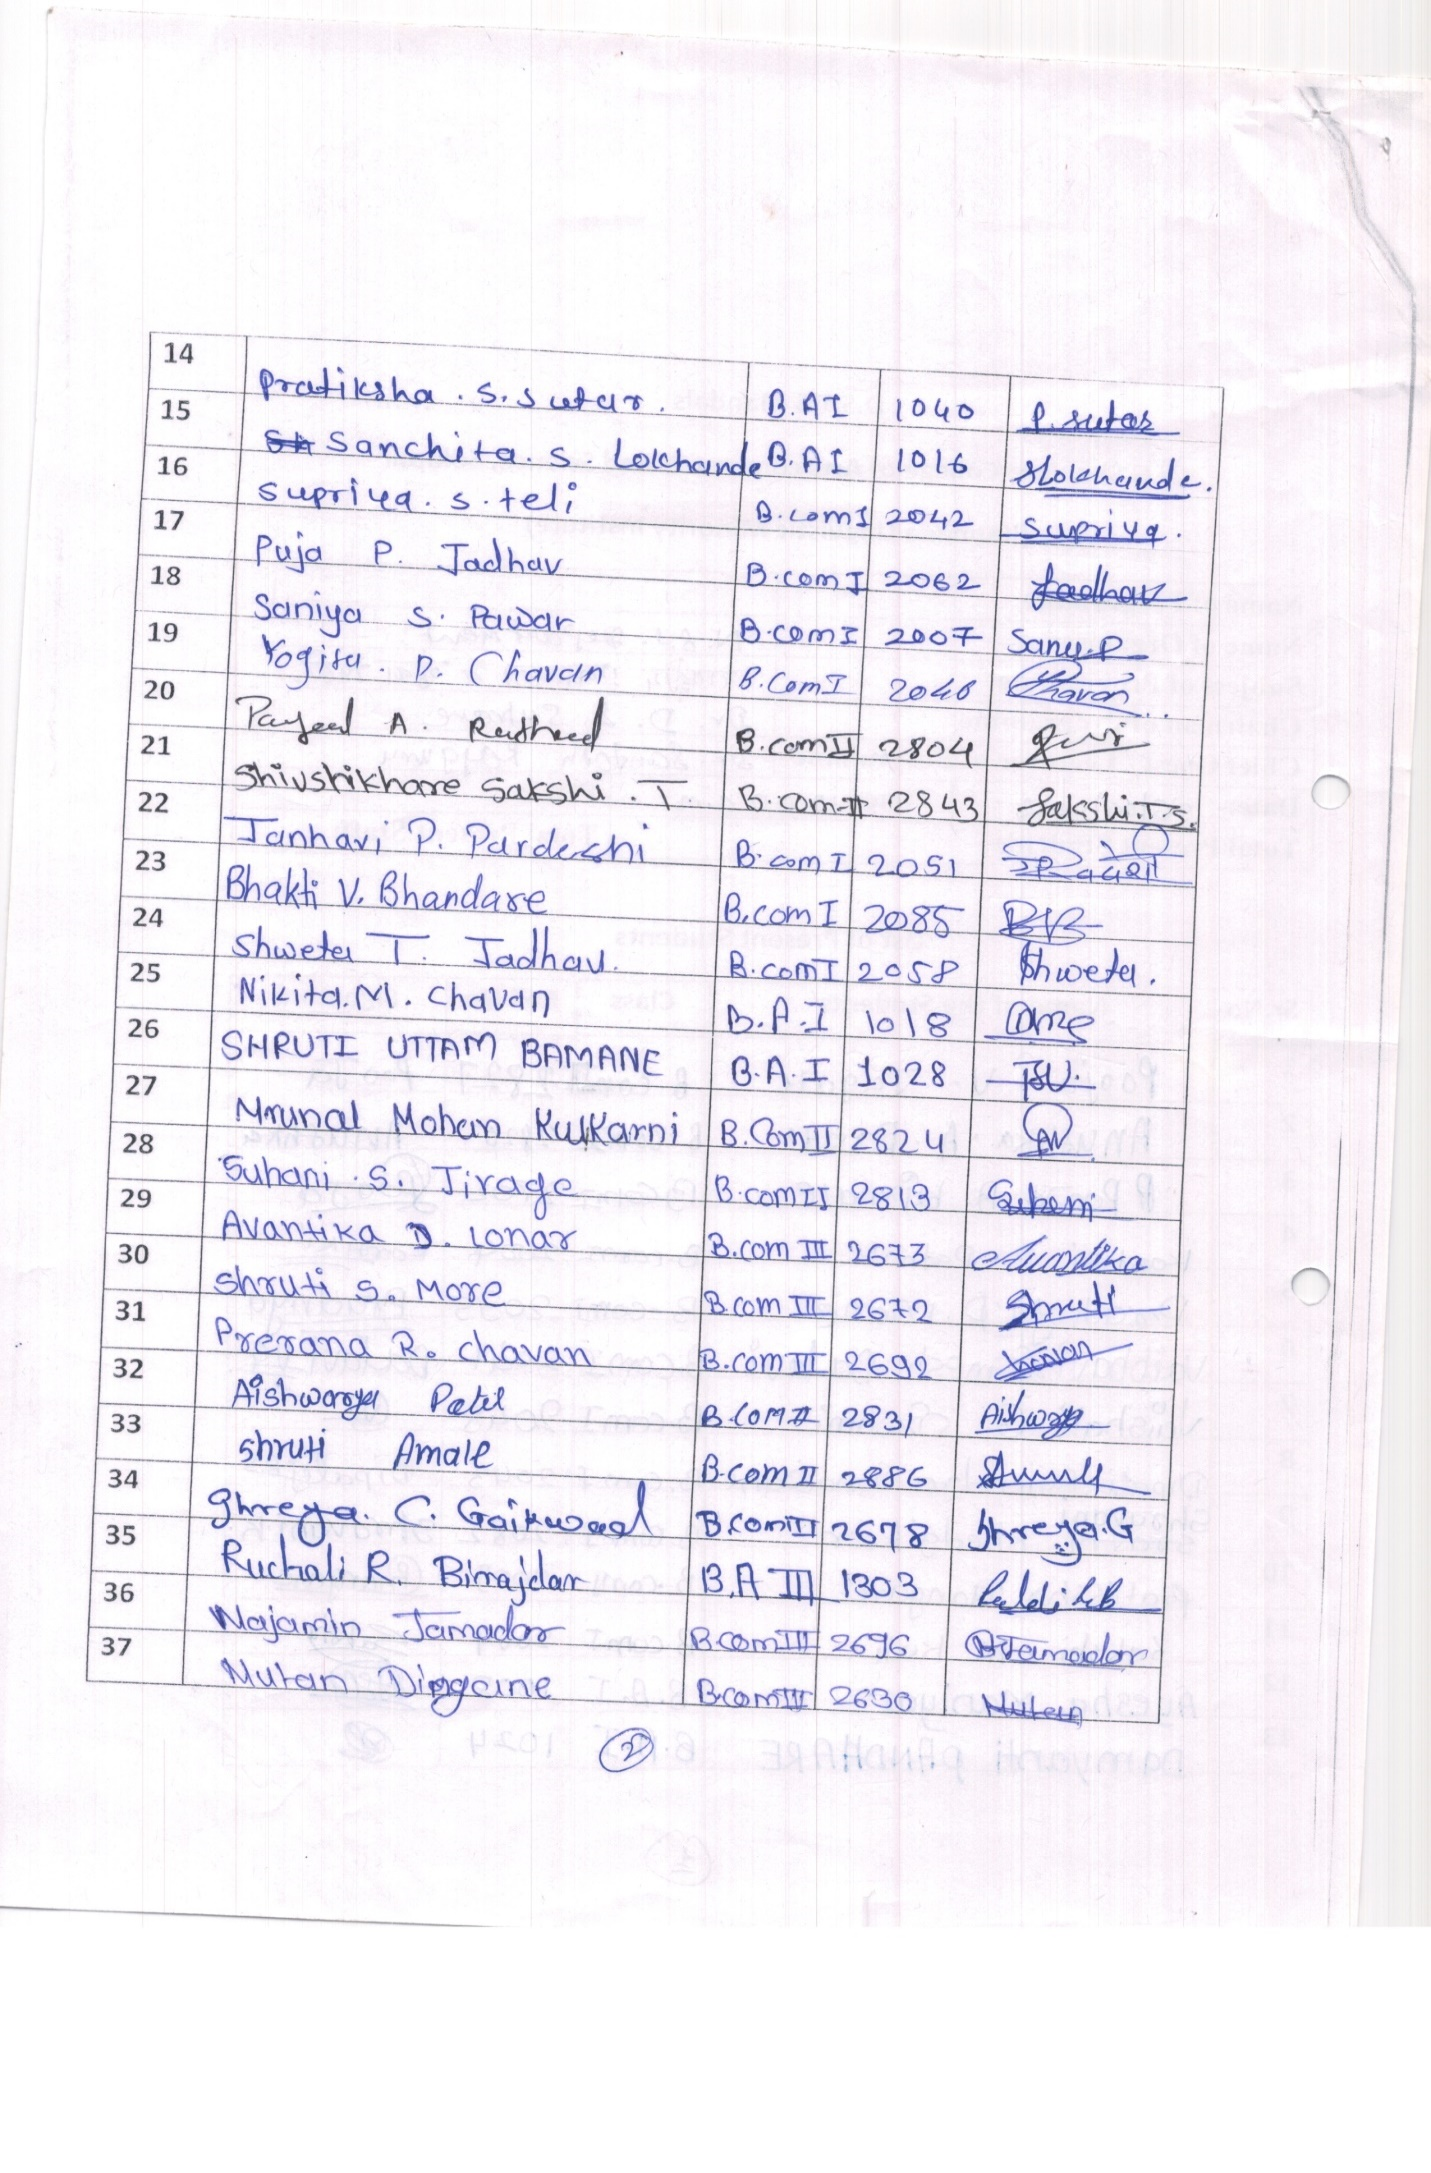 14 Pratiksha . S. Sutar . B.A I 1040 P. Sutar
15 Sanchita . S . Lokhande B.A I 1016 SLokhande.
16 Supriya . S . teli B.com I 2042 Supriya .
17 Puja P. Jadhav B.com I 2062 Jadhav
18 Saniya S. Pawar B.com I 2007 Sany.P
19 Yogita . D. Chavan B.Com I 2040 Chavan
20 A. B.com II 2804
21 Shivshikhare Sakshi . T B.com-II 2843 Sakshi.T.S.
22 Janhavi P. Pardeshi B.com I 2051
23 Bhakti V. Bhandare B.com I 2085 BVB
24 Shweta T. Jadhav. B.com I 2058 Shweta .
25 Nikita.M. Chavan B.A.I 1018
26 SHRUTI UTTAM BAMANE B.A.I 1028
27 Mrunal Mohan Kulkarni B.Com II 2824
28 Suhani . S. Jirage B.com II 2813 Suhani
29 Avantika D. Lonar B.com III 2673 Avantika
30 Shruti S. More B.com III 2672 Shruti
31 Prerana R. Chavan B.com III 2692 Chavan
32 Aishwarya Patil B.COM II 2831 Aishwarya
33 Shruti Amale B.com II 2886
34 Shreya. C. Gaikwad B.com III 2678 Shreya.G
35 R. Birajdar B.A III 1303
36 Najamin Jamadar B.com III 2696 Jamadar
37 Nutan Diggaine B.com III 2630 Nutan
2